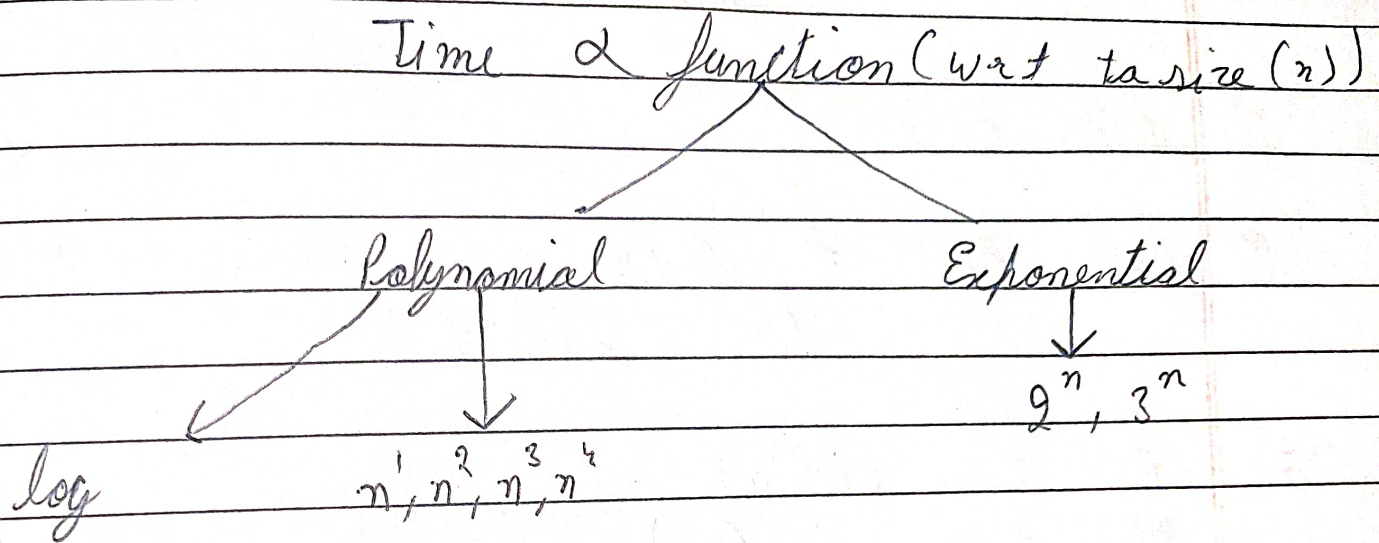 Time α function (wrt to size (n))
Polynomial Exponential
2ⁿ, 3ⁿ
log n¹, n², n³, n⁴